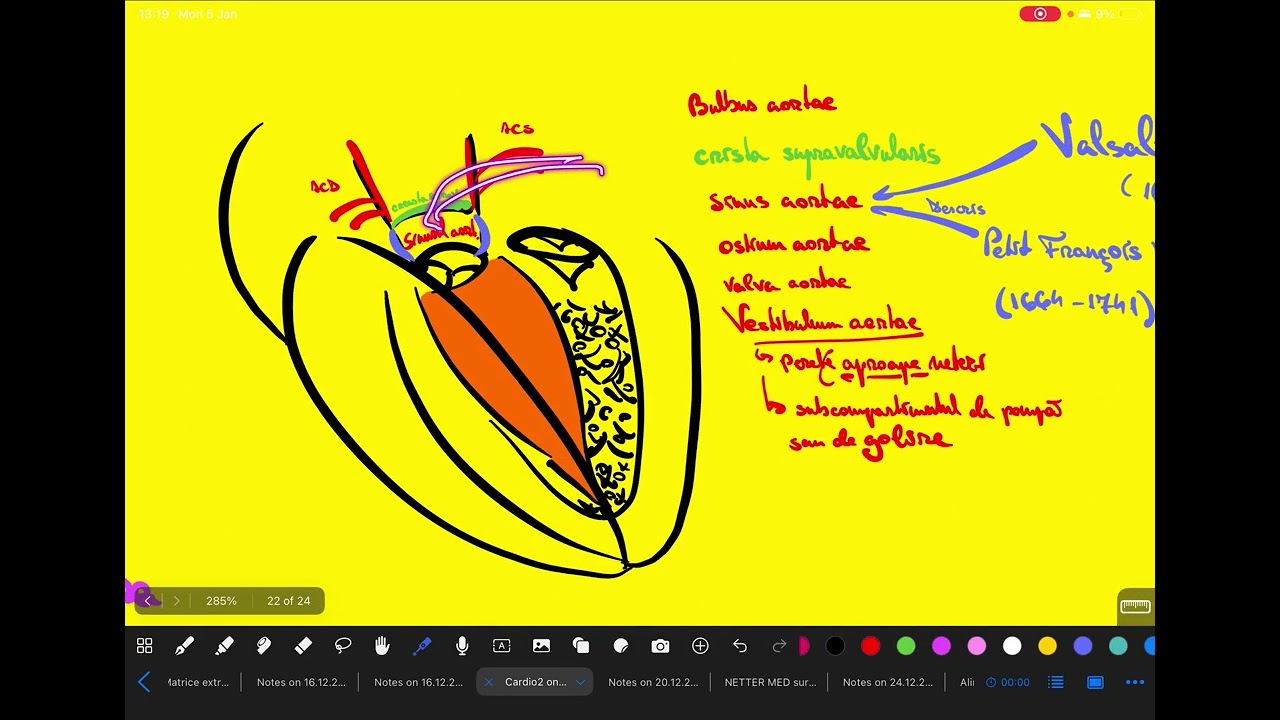 13:19 Mon 5 Jan
9%
Bulbus aortae
ACS
crista supravalvularis
Valsal
ACD
sinus aortae
Descris
Petit François
Sinus aort.
ostium aortae
valva aortae
(1664-1741)
Vestibulum aortae
perete aproape neted
subcompartimentul de pompă
sau de golire
285%
22 of 24
Matrice extr...
Notes on 16.12.2...
Notes on 16.12.2...
Cardio2 on...
Notes on 20.12.2...
NETTER MED sur...
Notes on 24.12.2...
Ali
00:00